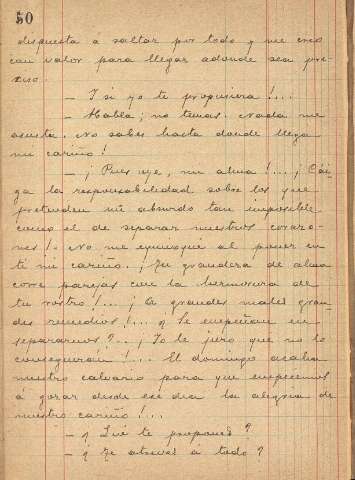 50
dispuesta á saltar por todo y me creo
con valor para llegar adonde sea pre-
ciso.
— Y si yo te propusiera!...
— Habla; no temas. Nada me
asusta. No sabes hasta donde llega
mi cariño!
— ¡Pues oye, mi alma!... ¡Cái-
ga la responsabilidad sobre los que
pretenden un absurdo tan imposible
como el de separar nuestros corazo-
nes!. No me equivoqué al poner en
ti mi cariño. ¡Tu grandeza de alma
corre parejas con la hermosura de
tu rostro!... ¡A grandes males gran-
des remedios!... ¿Se empeñan en
separarnos?.. ¡Yo te juro que no lo
conseguiran!... El domingo acaba
nuestro calvario para que empecemos
á gozar desde ese dia la alegria de
nuestro cariño!...
— ¿Qué te propones?
— ¿Te atreves á todo?